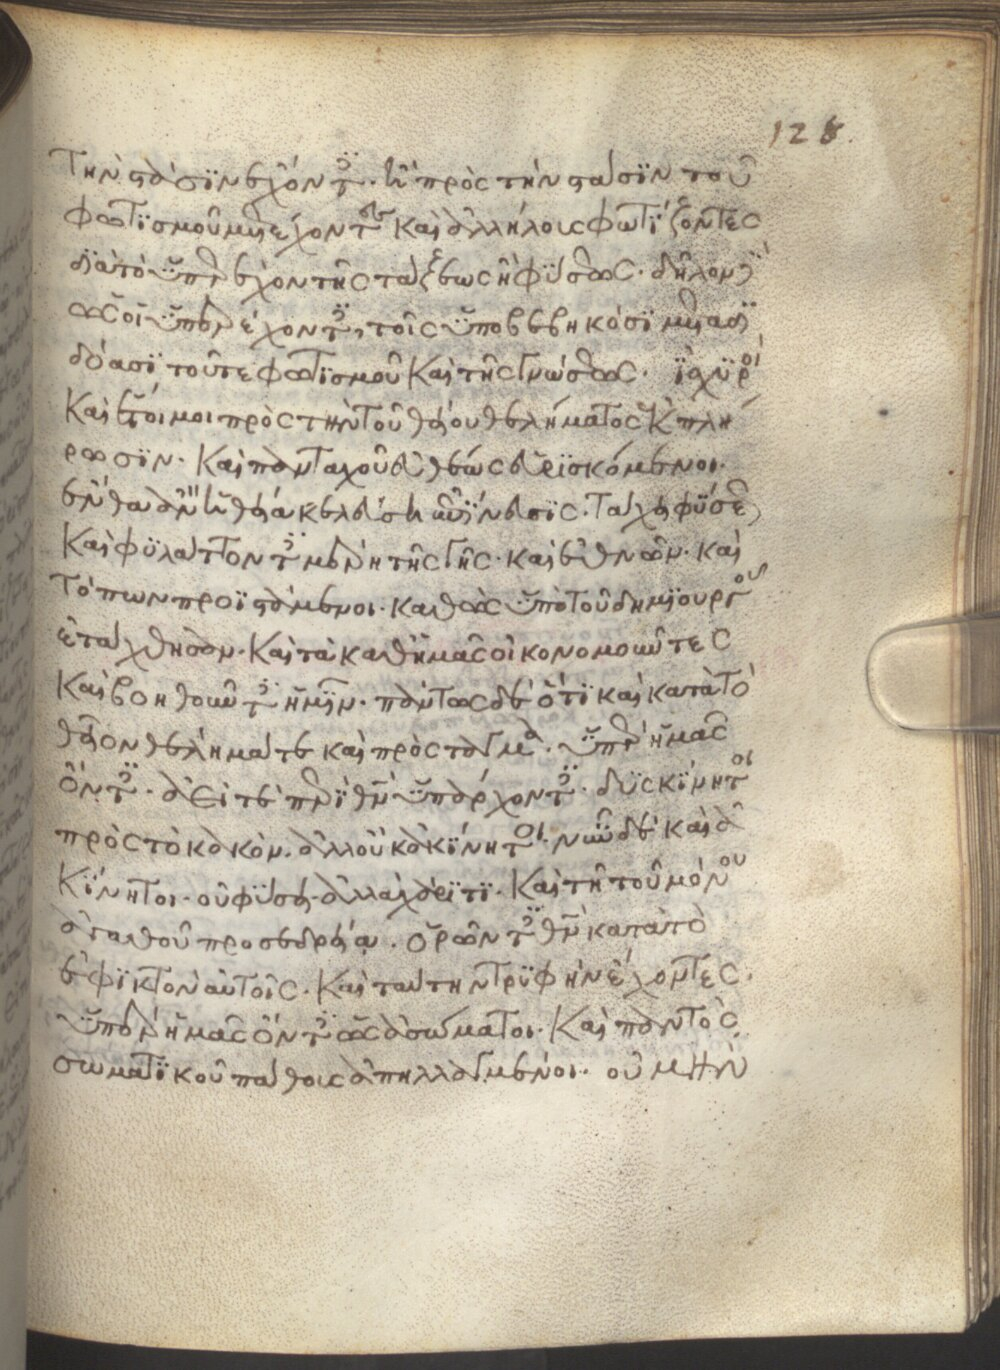 128.
Τὴν στάσϊν ἔχοντες. ἢ πρὸς τὴν στάσϊν τοῦ
φωτϊσμοῦ μετέχοντες καὶ ἀλλήλοις φωτΐζοντες
δϊὰ τὸ ὑπερέχον τῆς τάξεως ἢ φύσεως. δῆλον δὲ
ὡς οἱ ὑπερέχοντες, τοῖς ὑποβεβηκόσϊ μεταδϊ
δόασϊ τοῦ τε φωτϊσμοῦ καὶ τῆς γνώσεως. ϊσχϋροὶ
καὶ ἕτοιμοι πρὸς τὴν τοῦ θείου θελήματος ἐκπλή
ρωσϊν. καὶ πανταχοῦ εὐθέως εὑρϊσκόμενοι.
ἔνθα ἂν ἡ θεία κελεύσῃ νεῦσϊς. τάχει φύσεως
καὶ φϋλάττοντες μέρη τῆς γῆς. καὶ ἐθνῶν. καὶ
τόπων προϊστάμενοι. καθὼς ὑπὸ τοῦ δημϊουργοῦ
ἐτάχθησαν. καὶ τὰ καθ' ἡμᾶς οἰκονομοῦντες
καὶ βοηθοῦντες ἡμῖν. πάντως δὲ ὅτϊ καὶ κατὰ τὸ
θεῖον θέλημά τε καὶ πρόσταγμα. ὑπὲρ ἡμᾶς
ὄντες. ἀεί τε περϊ θεὸν ὑπάρχοντες. δϋσκΐνητοι
πρὸς τὸ κακὸν. ἀλλ' οὐκ ἀκΐνητοι. νῦν δὲ καὶ ἀ
κΐνητοι. οὐ φϋσει. ἀλλὰ χάρϊτϊ. καὶ τῆ τοῦ μόνου
ἀγαθοῦ προσεδρεία. ὁρῶντες θεὸν κατὰ τὸ
ἐφϊκτὸν αὐτοῖς. καὶ ταύτην τρϋφὴν ἔχοντες.
ὑπὲρ ἡμᾶς ὄντες ὡς ἀσώματοι. καὶ παντὸς
σωματϊκοῦ πάθους ἀπηλλαγμένοι. οὐ μὴν